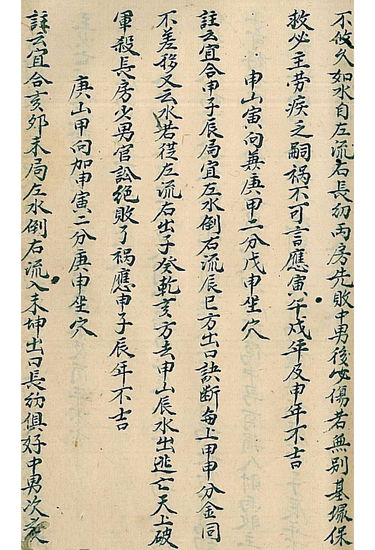 不攸久如水自左流右長幼两房先敗中男後必傷若無别基塚保
救必主劳疾乏嗣禍不可言應寅午戌年及申年不吉
申山寅向兼庚甲二分戊申坐穴
註云宜合申子辰局宜左水倒右流辰巳方出口訣断每上甲申分金同
不差移又云水若從左流右出子癸乾亥方去申山辰水出逃亡天上破
軍殺長房少男官訟絶敗了禍應申子辰年不吉
庚山甲向加申寅二分庚申坐穴
註云宜合亥卯未局左水倒右流入未坤出口長幼俱好中男次之